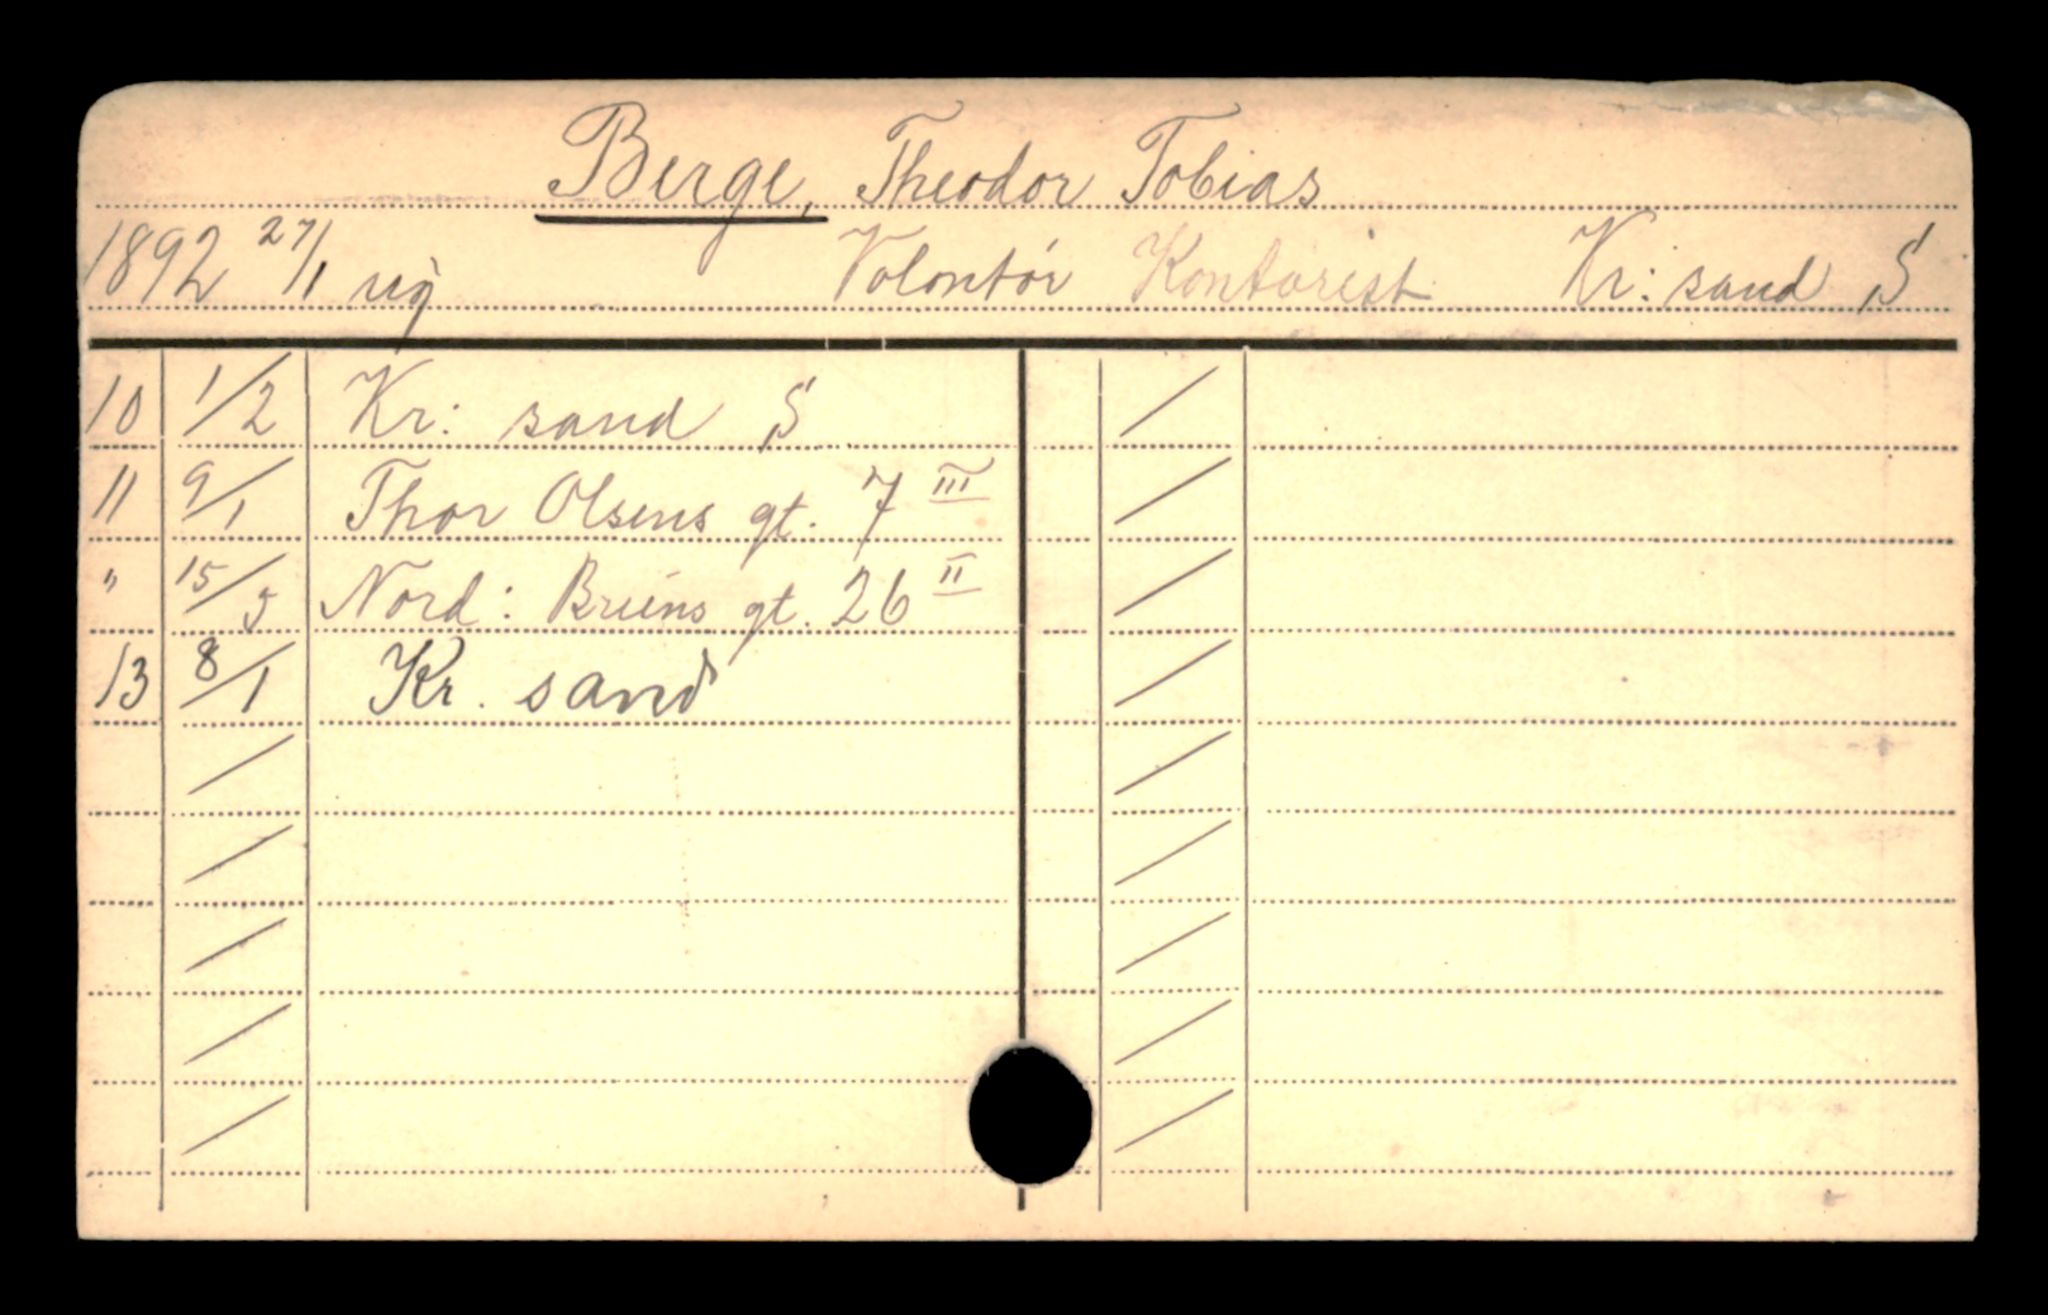 Berge, Theodor Tobias
1892 27/1 ug Volontör Kontorist Kr: sand S
10 1/2 Kr: sand S
11 9/1 Thor Olsens gt. 7 III
" 15/5 Nord: Bruns gt. 26 II
13 8/1 Kr. sand